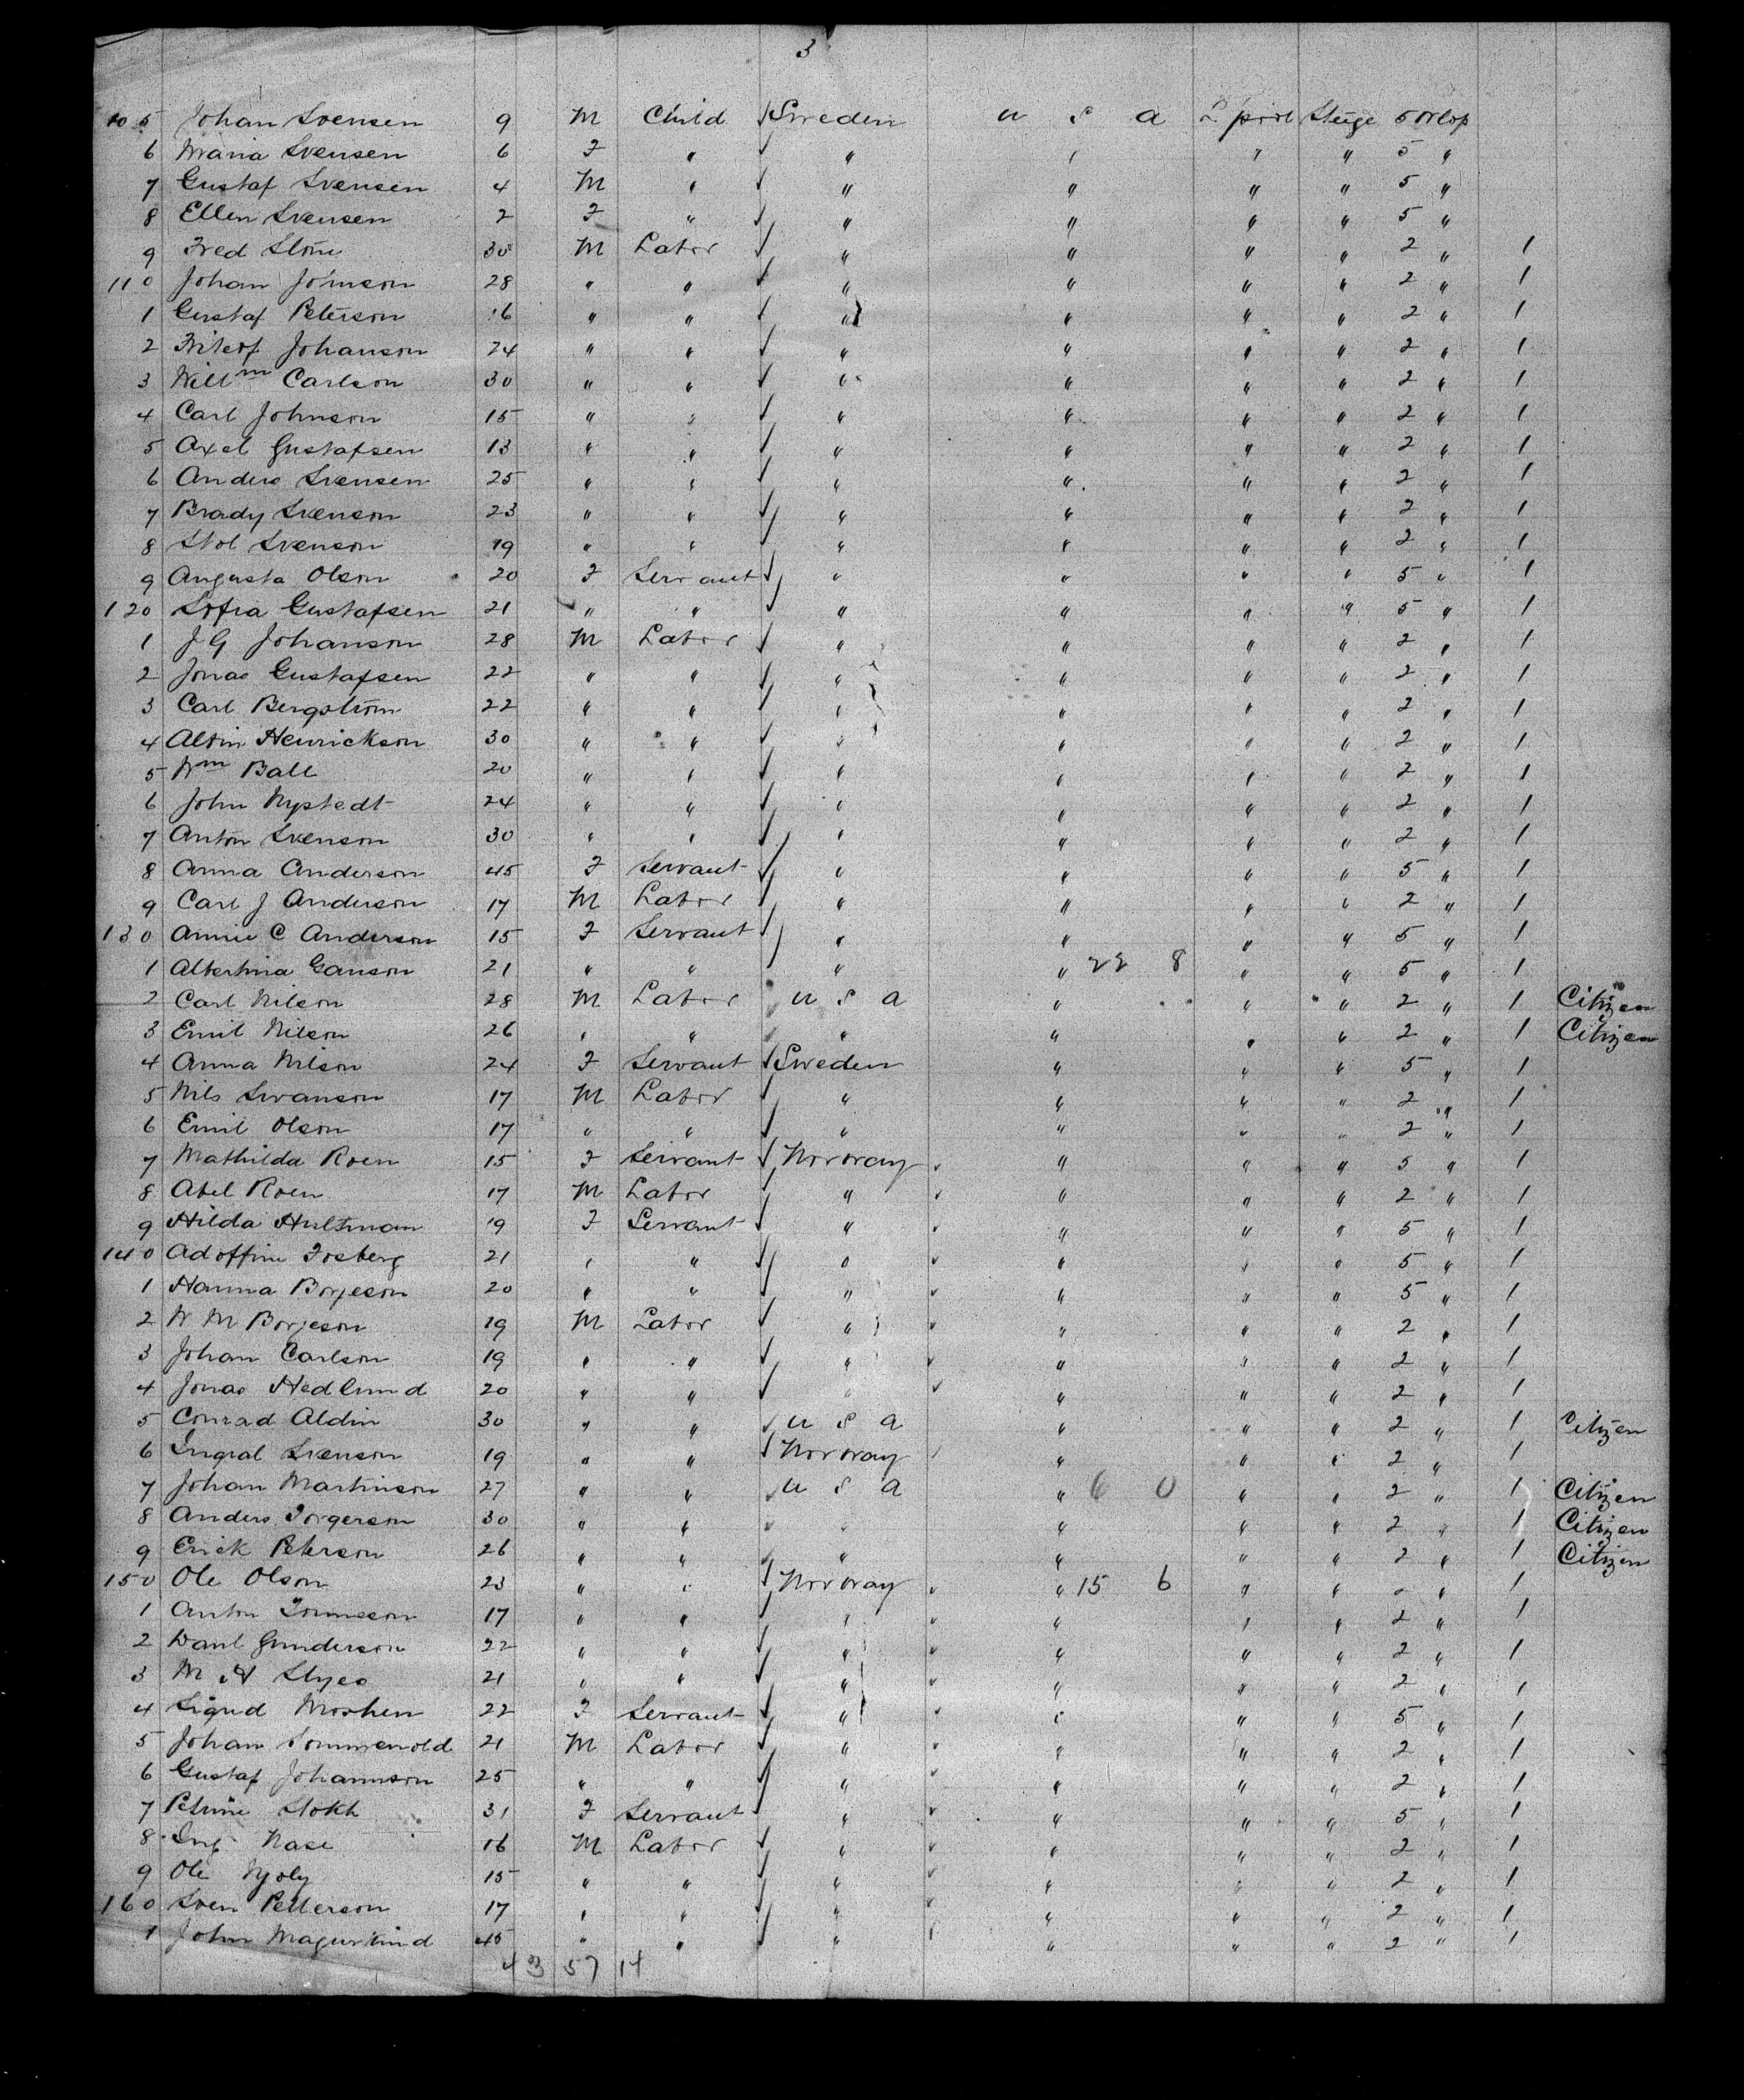 3
105 Johan Svensen 9 M Child Sweden U S A L'pool Steige 5 Orlop
6 Maria Svensen 6 F " " " " " 5 "
7 Gustaf Svensen 4 M " " " " " 5 "
8 Ellen Svensen 2 F " " " " " 5 "
9 Fred Slom 30 M Labor " " " " 2 " 1
110 Johan Johnson 28 " " " " " " 2 " 1
1 Gustaf Peterson 16 " " " " " " 2 " 1
2 Fritiof Johanson 24 " " " " " " 2 " 1
3 Willm Carlson 30 " " " " " " 2 " 1
4 Carl Johnson 15 " " " " " " 2 " 1
5 Axel Gustafsen 13 " " " " " " 2 " 1
6 Anders Svensen 25 " " " " " " 2 " 1
7 Brady Svenson 23 " " " " " " 2 " 1
8 Stol Svenson 19 " " " " " " 2 " 1
9 Augusta Olson 20 F Servant " " " " 5 " 1
120 Sofia Gustafsen 21 " " " " " " 5 " 1
1 J G Johanson 28 M Labor " " " " 2 " 1
2 Jonas Gustafsen 22 " " " " " " 2 " 1
3 Carl Bergstrom 22 " " " " " " 2 " 1
4 Alvin Henrickson 30 " " " " " " 2 " 1
5 Wm Ball 20 " " " " " " 2 " 1
6 John Nystedt 24 " " " " " " 2 " 1
7 Anton Svenson 30 " " " " " " 2 " 1
8 Anna Anderson 45 F Servant " " " " 5 " 1
9 Carl J Anderson 17 M Labor " " " " 2 " 1
130 Annie C Anderson 15 F Servant " " " " 5 " 1
1 Albertina Ganson 21 " " " " 22 8 " " 5 " 1
2 Carl Nilson 28 M Labor U S A " " " 2 " 1 Citizen
3 Emil Nilson 26 " " " " " " 2 " 1 Citizen
4 Anna Nilson 24 F Servant Sweden " " " 5 " 1
5 Nils Swanson 17 M Labor " " " " 2 " 1
6 Emil Olson 17 " " " " " " 2 " 1
7 Mathilda Roen 15 F Servant Norway " " " 5 " 1
8 Abel Roen 17 M Labor " " " " 2 " 1
9 Hilda Hultman 19 F Servant " " " " 5 " 1
140 Adoffine Fosberg 21 " " " " " " 5 " 1
1 Hanna Borjeson 20 " " " " " " 5 " 1
2 W M Borjeson 19 M Labor " " " " 2 " 1
3 Johan Carlson 19 " " " " " " 2 " 1
4 Jonas Hedlund 20 " " " " " " 2 " 1
5 Conrad Aldin 30 " " U S A " " " 2 " 1 Citizen
6 Ingval Svenson 19 " " Norway " " " 2 " 1
7 Johan Martinson 27 " " U S A " 6 0 " " 2 " 1 Citizen
8 Anders Torgerson 30 " " " " " " 2 " 1 Citizen
9 Erick Peterson 26 " " " " " " 2 " 1 Citizen
150 Ole Olson 23 " " Norway " 15 6 " " " 1
1 Anton 17 " " " " " " 2 " 1
2 Gunderson 22 " " " " " " 2 " 1
3 M A 21 " " " " " " 2 " 1
4 Sigrid Moshen 22 F Servant " " " " 5 " 1
5 Johan 21 M Labor " " " " 2 " 1
6 Gustaf Johannson 25 " " " " " " 2 " 1
7 Petrine Stokh 31 F Servant " " " " 5 " 1
8 Nase 16 M Labor " " " " 2 " 1
9 Ole 15 " " " " " " 2 " 1
160 Sven Petterson 17 " " " " " " 2 " 1
1 John 45 " " " " " " 2 " 1
43 57 14